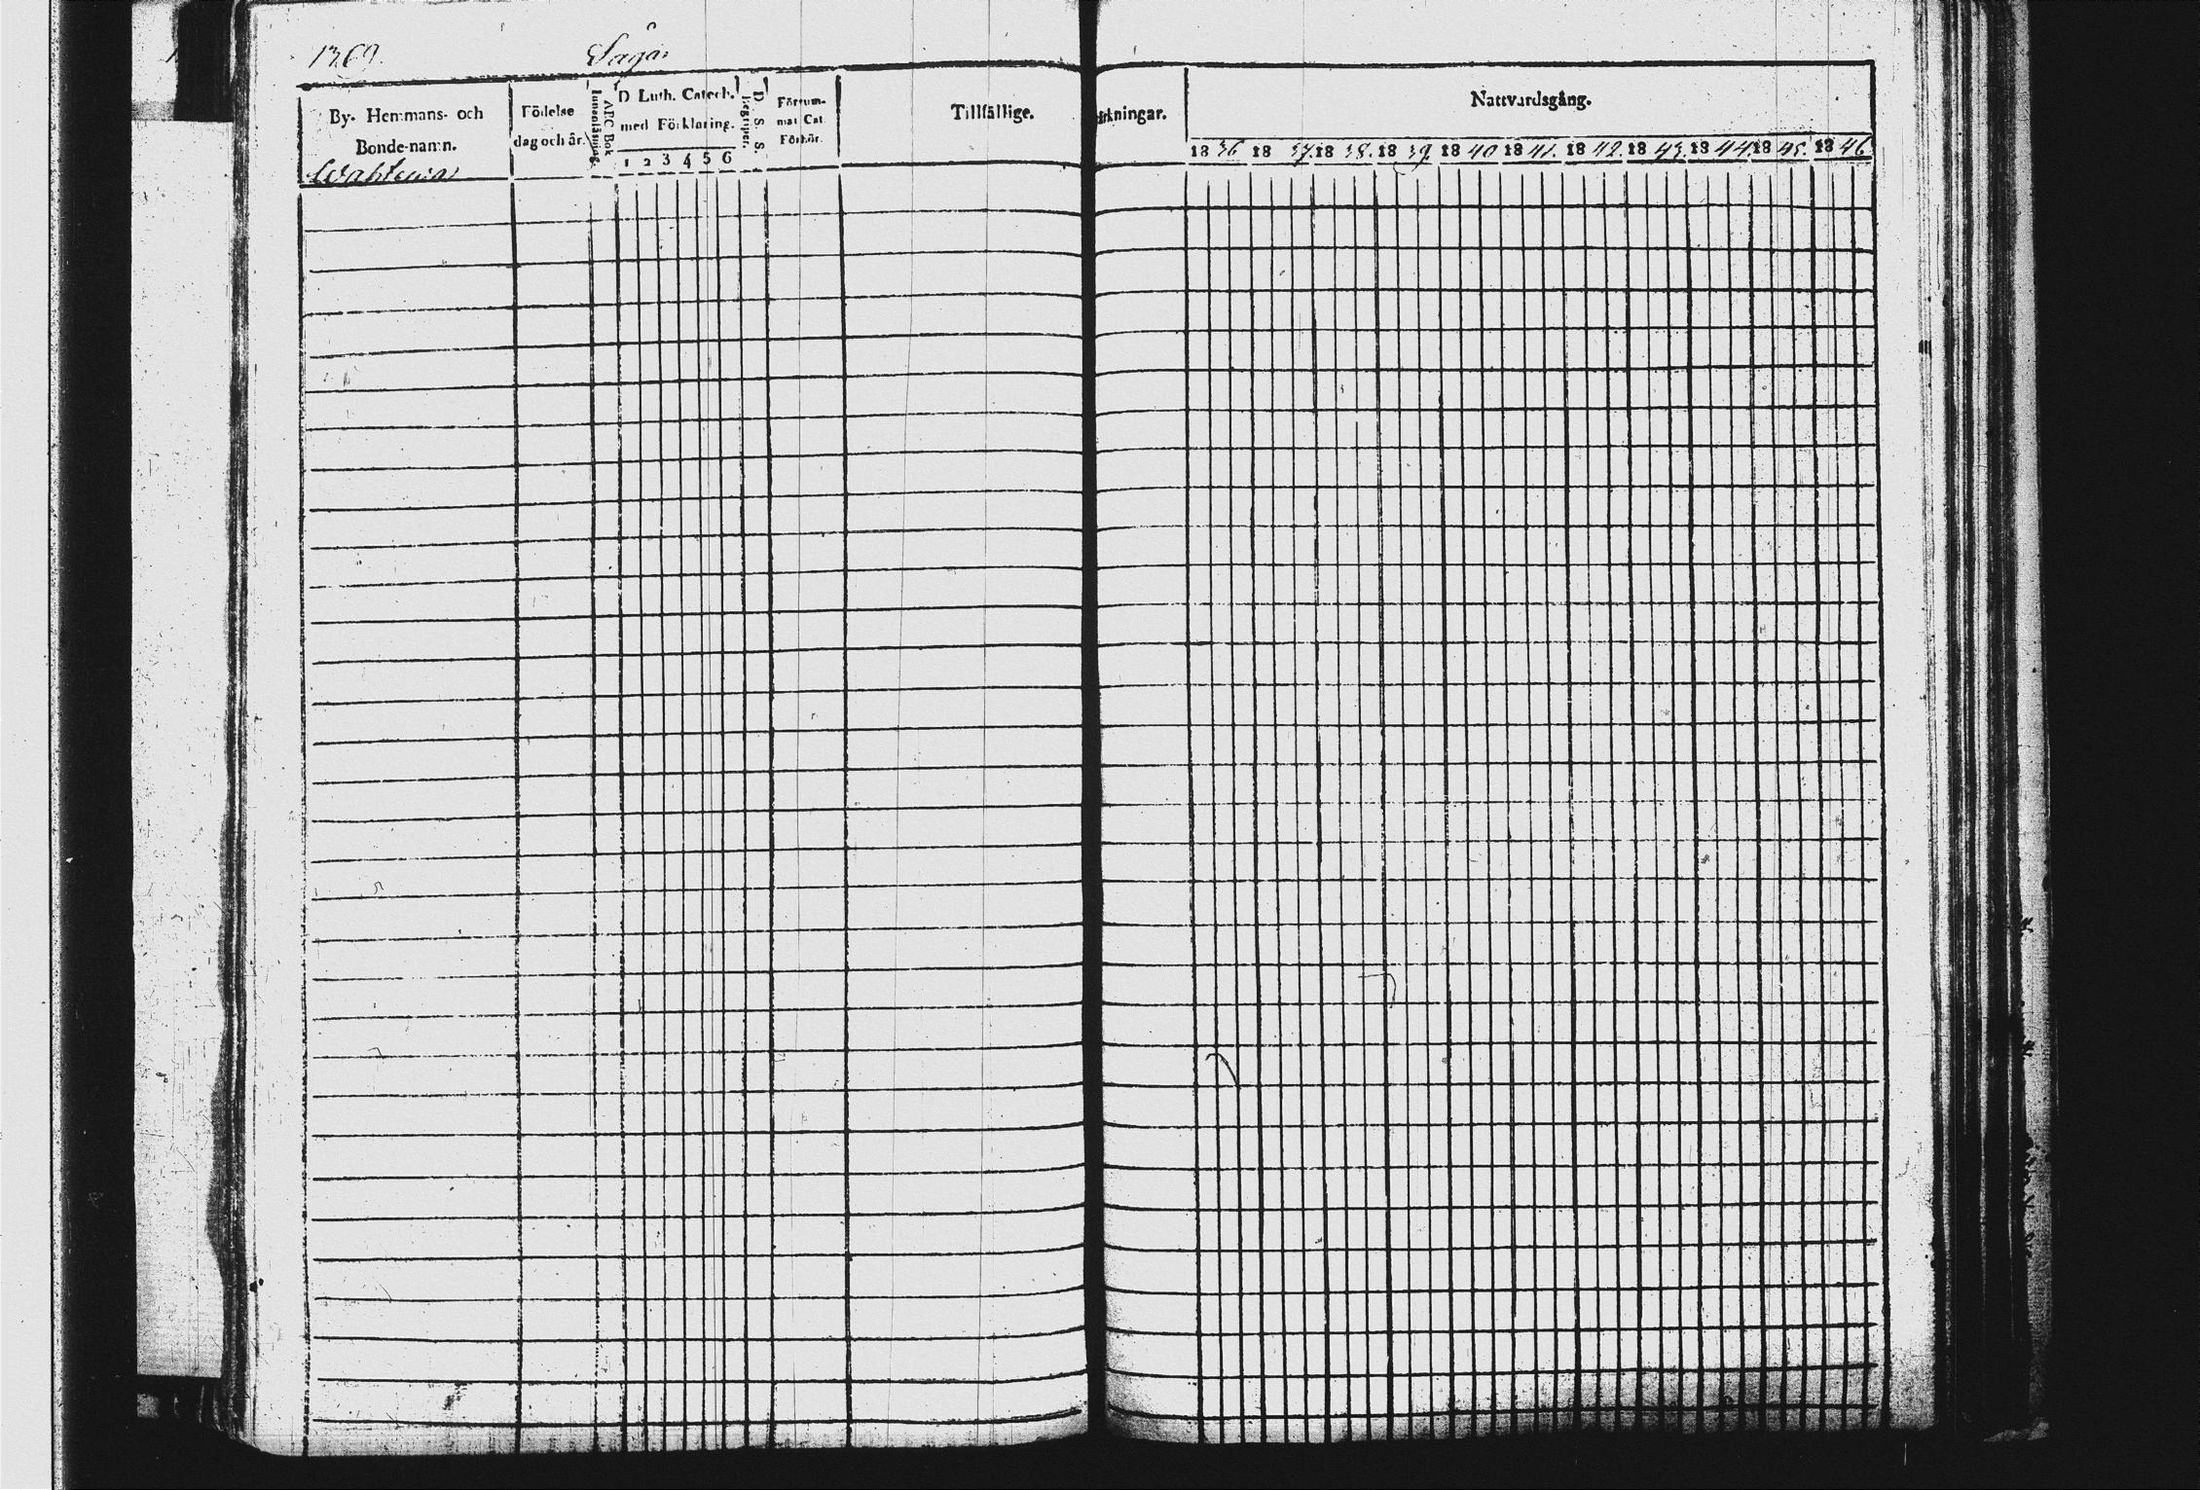 1369. Sagå.
By- Hemmans- och
Bonde-namn.
Födelse
dag och år.
Innenläsning.
ABC Bok
D Luth. Catech.
med Förklaring.
1 2 3 4 5 6
D. S. S.
Begriper.
Försum-
mat Cat.
Förhör.
Tillfällige.
Nattvardsgång.
1836 1837. 1838. 1839. 1840 1841. 1842. 1843. 1844. 1845. 1846.